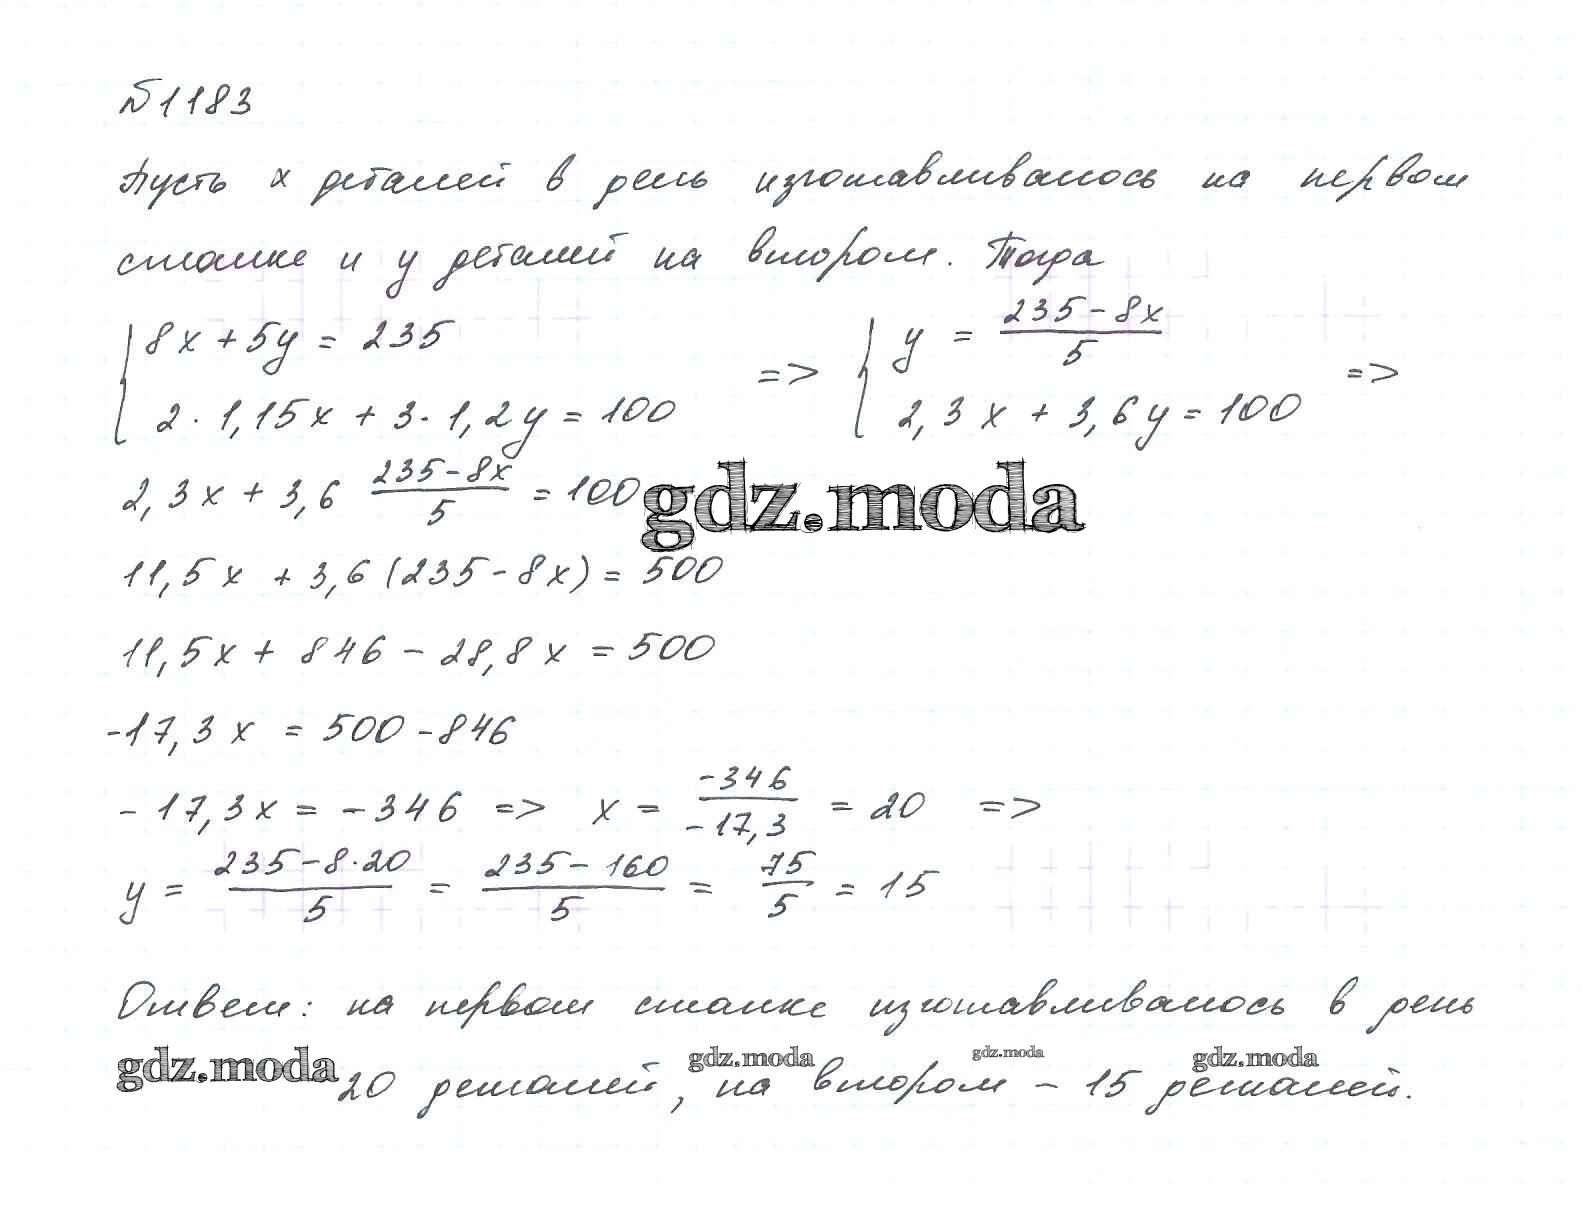 №1183
Пусть x деталей в день изготавливалось на первом
станке и y деталей на втором. Тогда
{ 8x + 5y = 235 => { y = (235 - 8x)/5 =>
{ 2 · 1,15x + 3 · 1,2y = 100 { 2,3x + 3,6y = 100
2,3x + 3,6 (235 - 8x)/5 = 100
gdz.moda
11,5x + 3,6(235 - 8x) = 500
11,5x + 846 - 28,8x = 500
-17,3x = 500 - 846
-17,3x = -346 => x = -346/-17,3 = 20 =>
y = (235 - 8·20)/5 = (235 - 160)/5 = 75/5 = 15
Ответ: на первом станке изготавливалось в день
gdz.moda gdz.moda gdz.moda gdz.moda
20 деталей, на втором - 15 деталей.